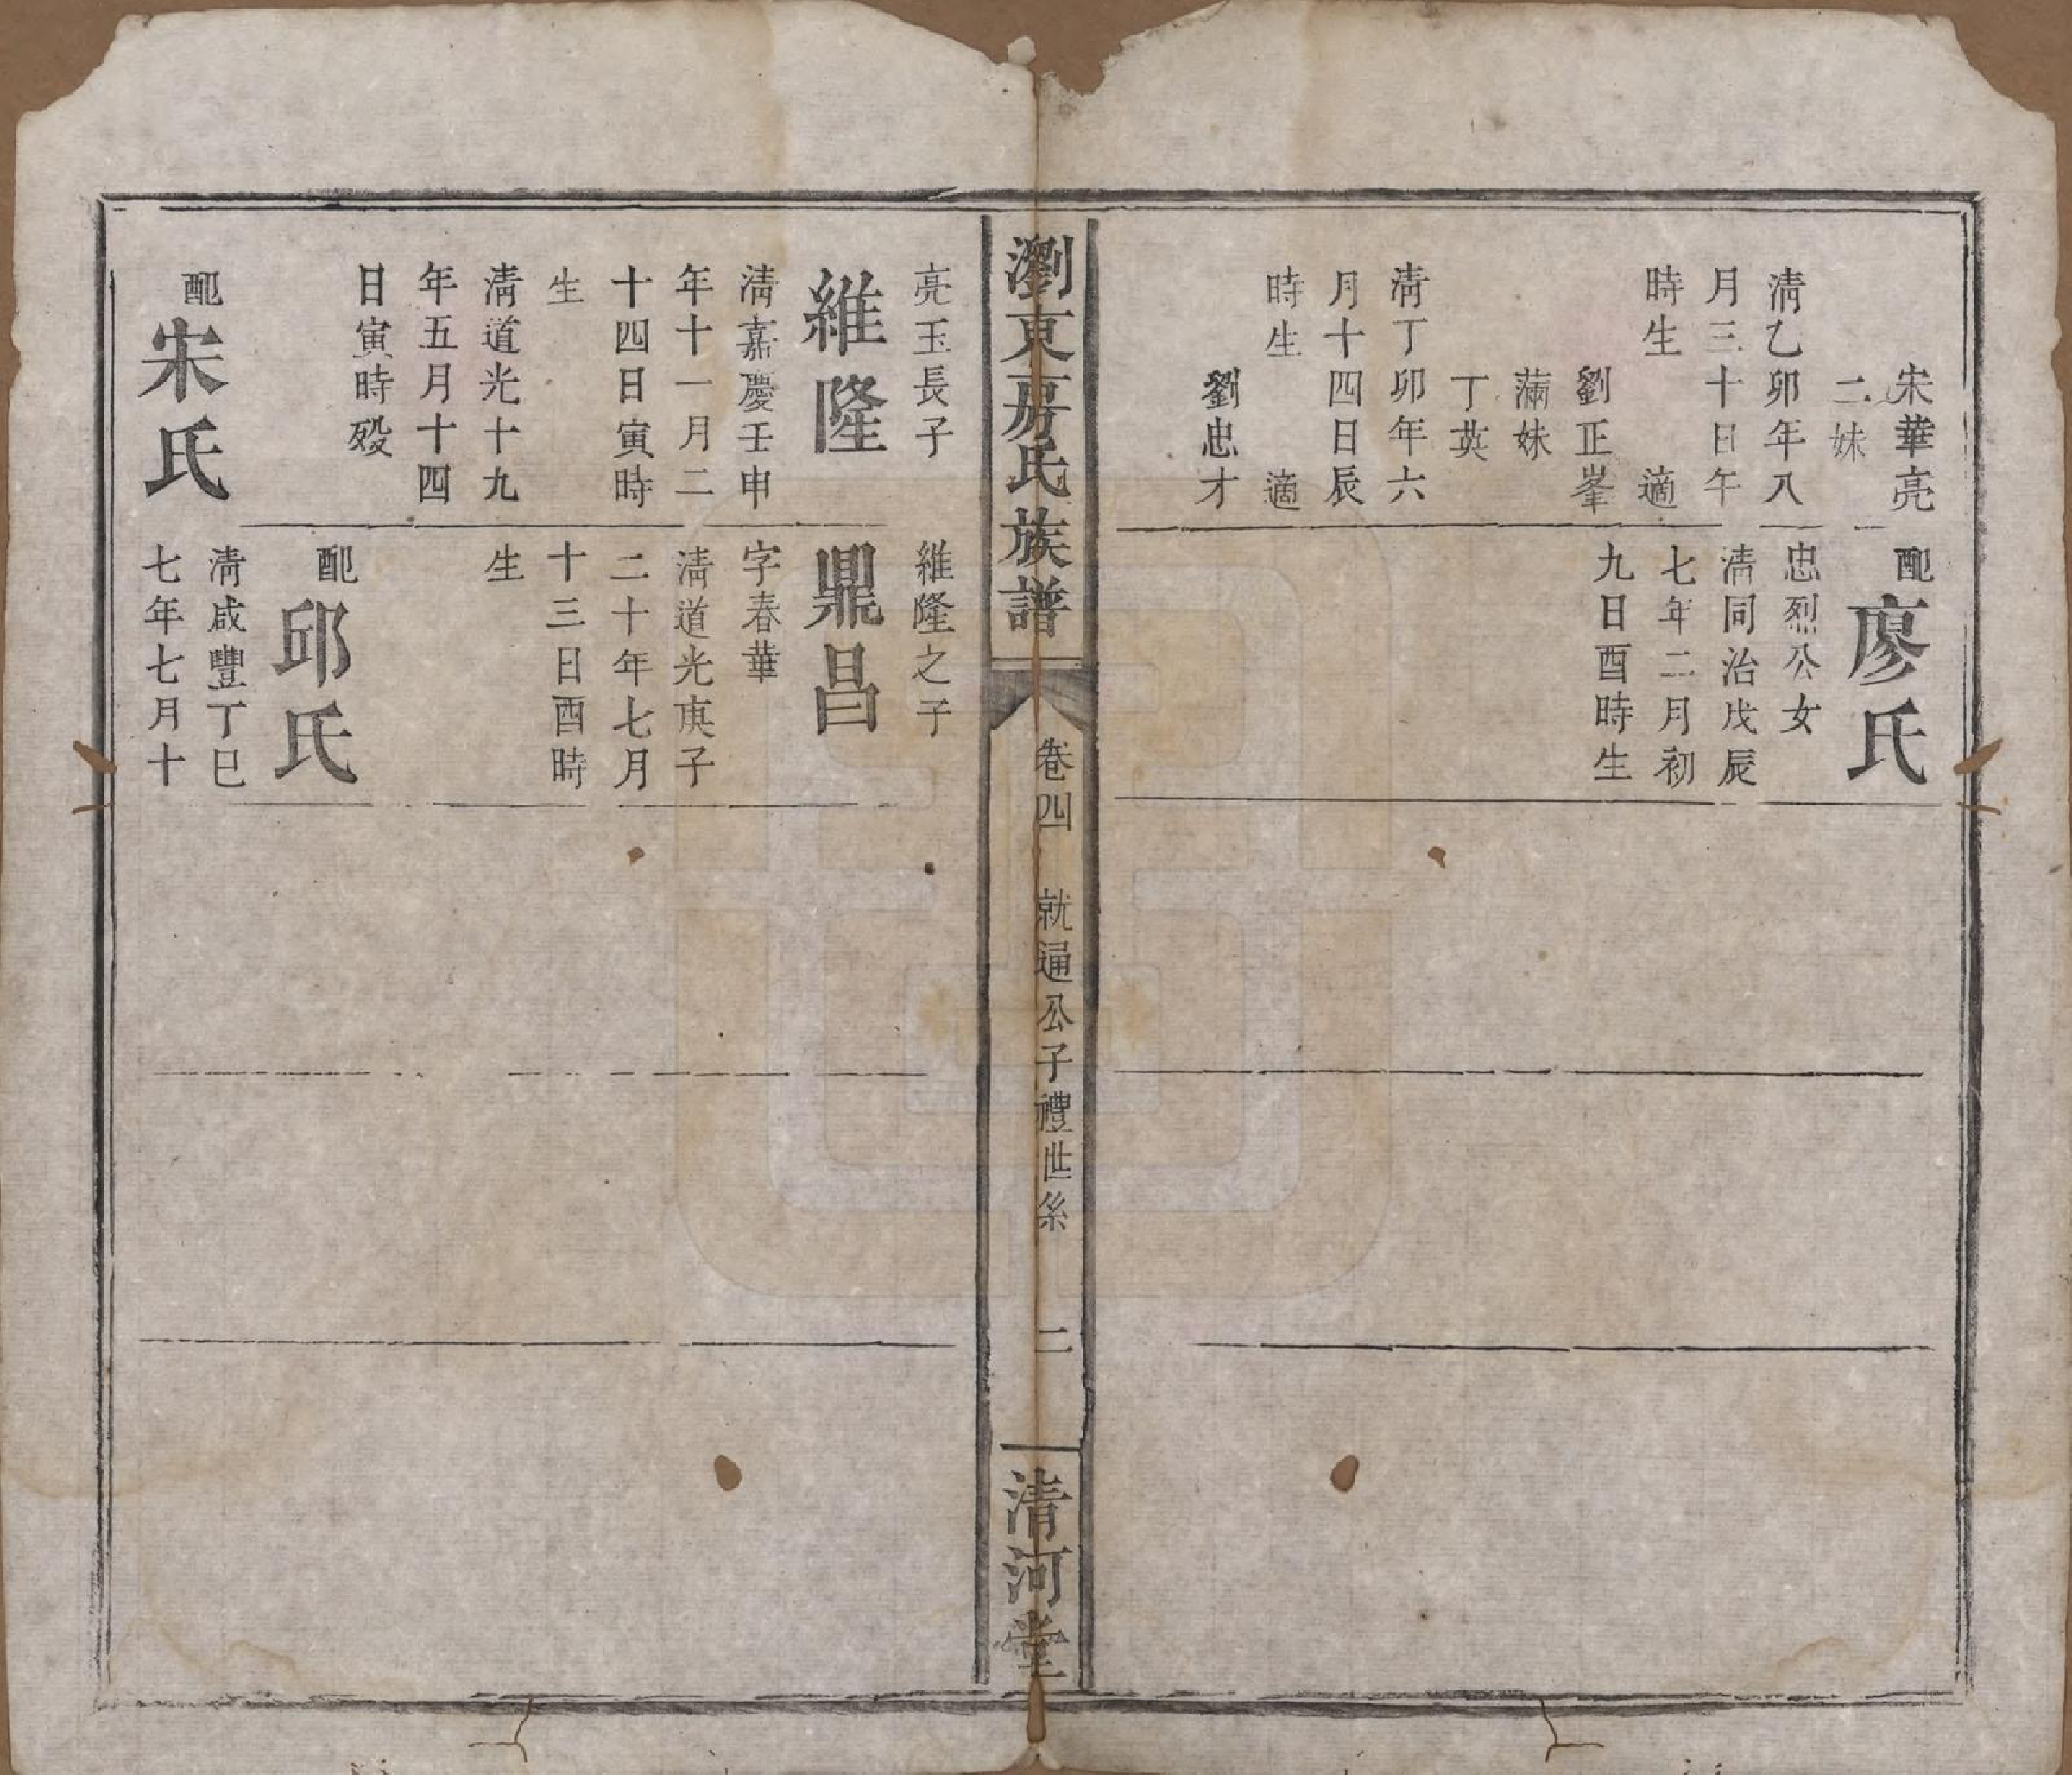 宋華亮
二妹
清乙卯年八
月三十日午
時生　適
劉正峯
滿妹
丁英
清丁卯年六
月十四日辰
時生　適
劉忠才
配廖氏
忠烈公女
清同治戊辰
七年二月初
九日酉時生
瀏東房氏族譜
卷四　就逼公子禮世系　二
清河堂
亮玉長子
維隆
清嘉慶壬申
年十一月二
十四日寅時
生
清道光十九
年五月十四
日寅時殁
配宋氏
維隆之子
鼎昌
字春華
清道光庚子
二十年七月
十三日酉時
生
配邱氏
清咸豐丁巳
七年七月十